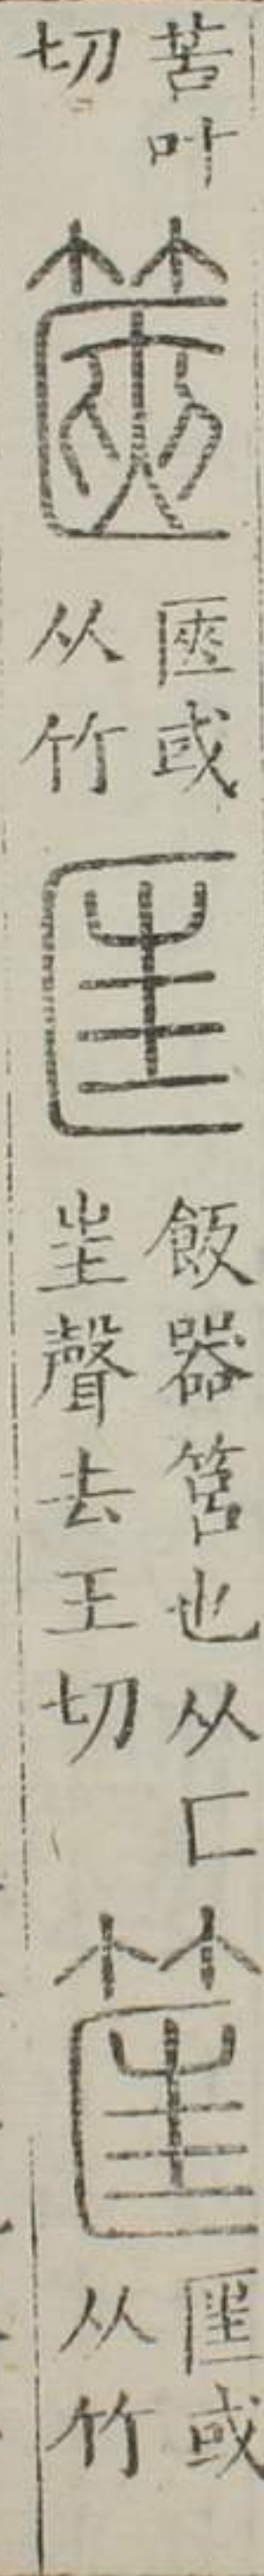 苦叶
切
篋
匧或
从竹
匡
飯器筥也从匚
㞷聲去王切
筐
匡或
从竹